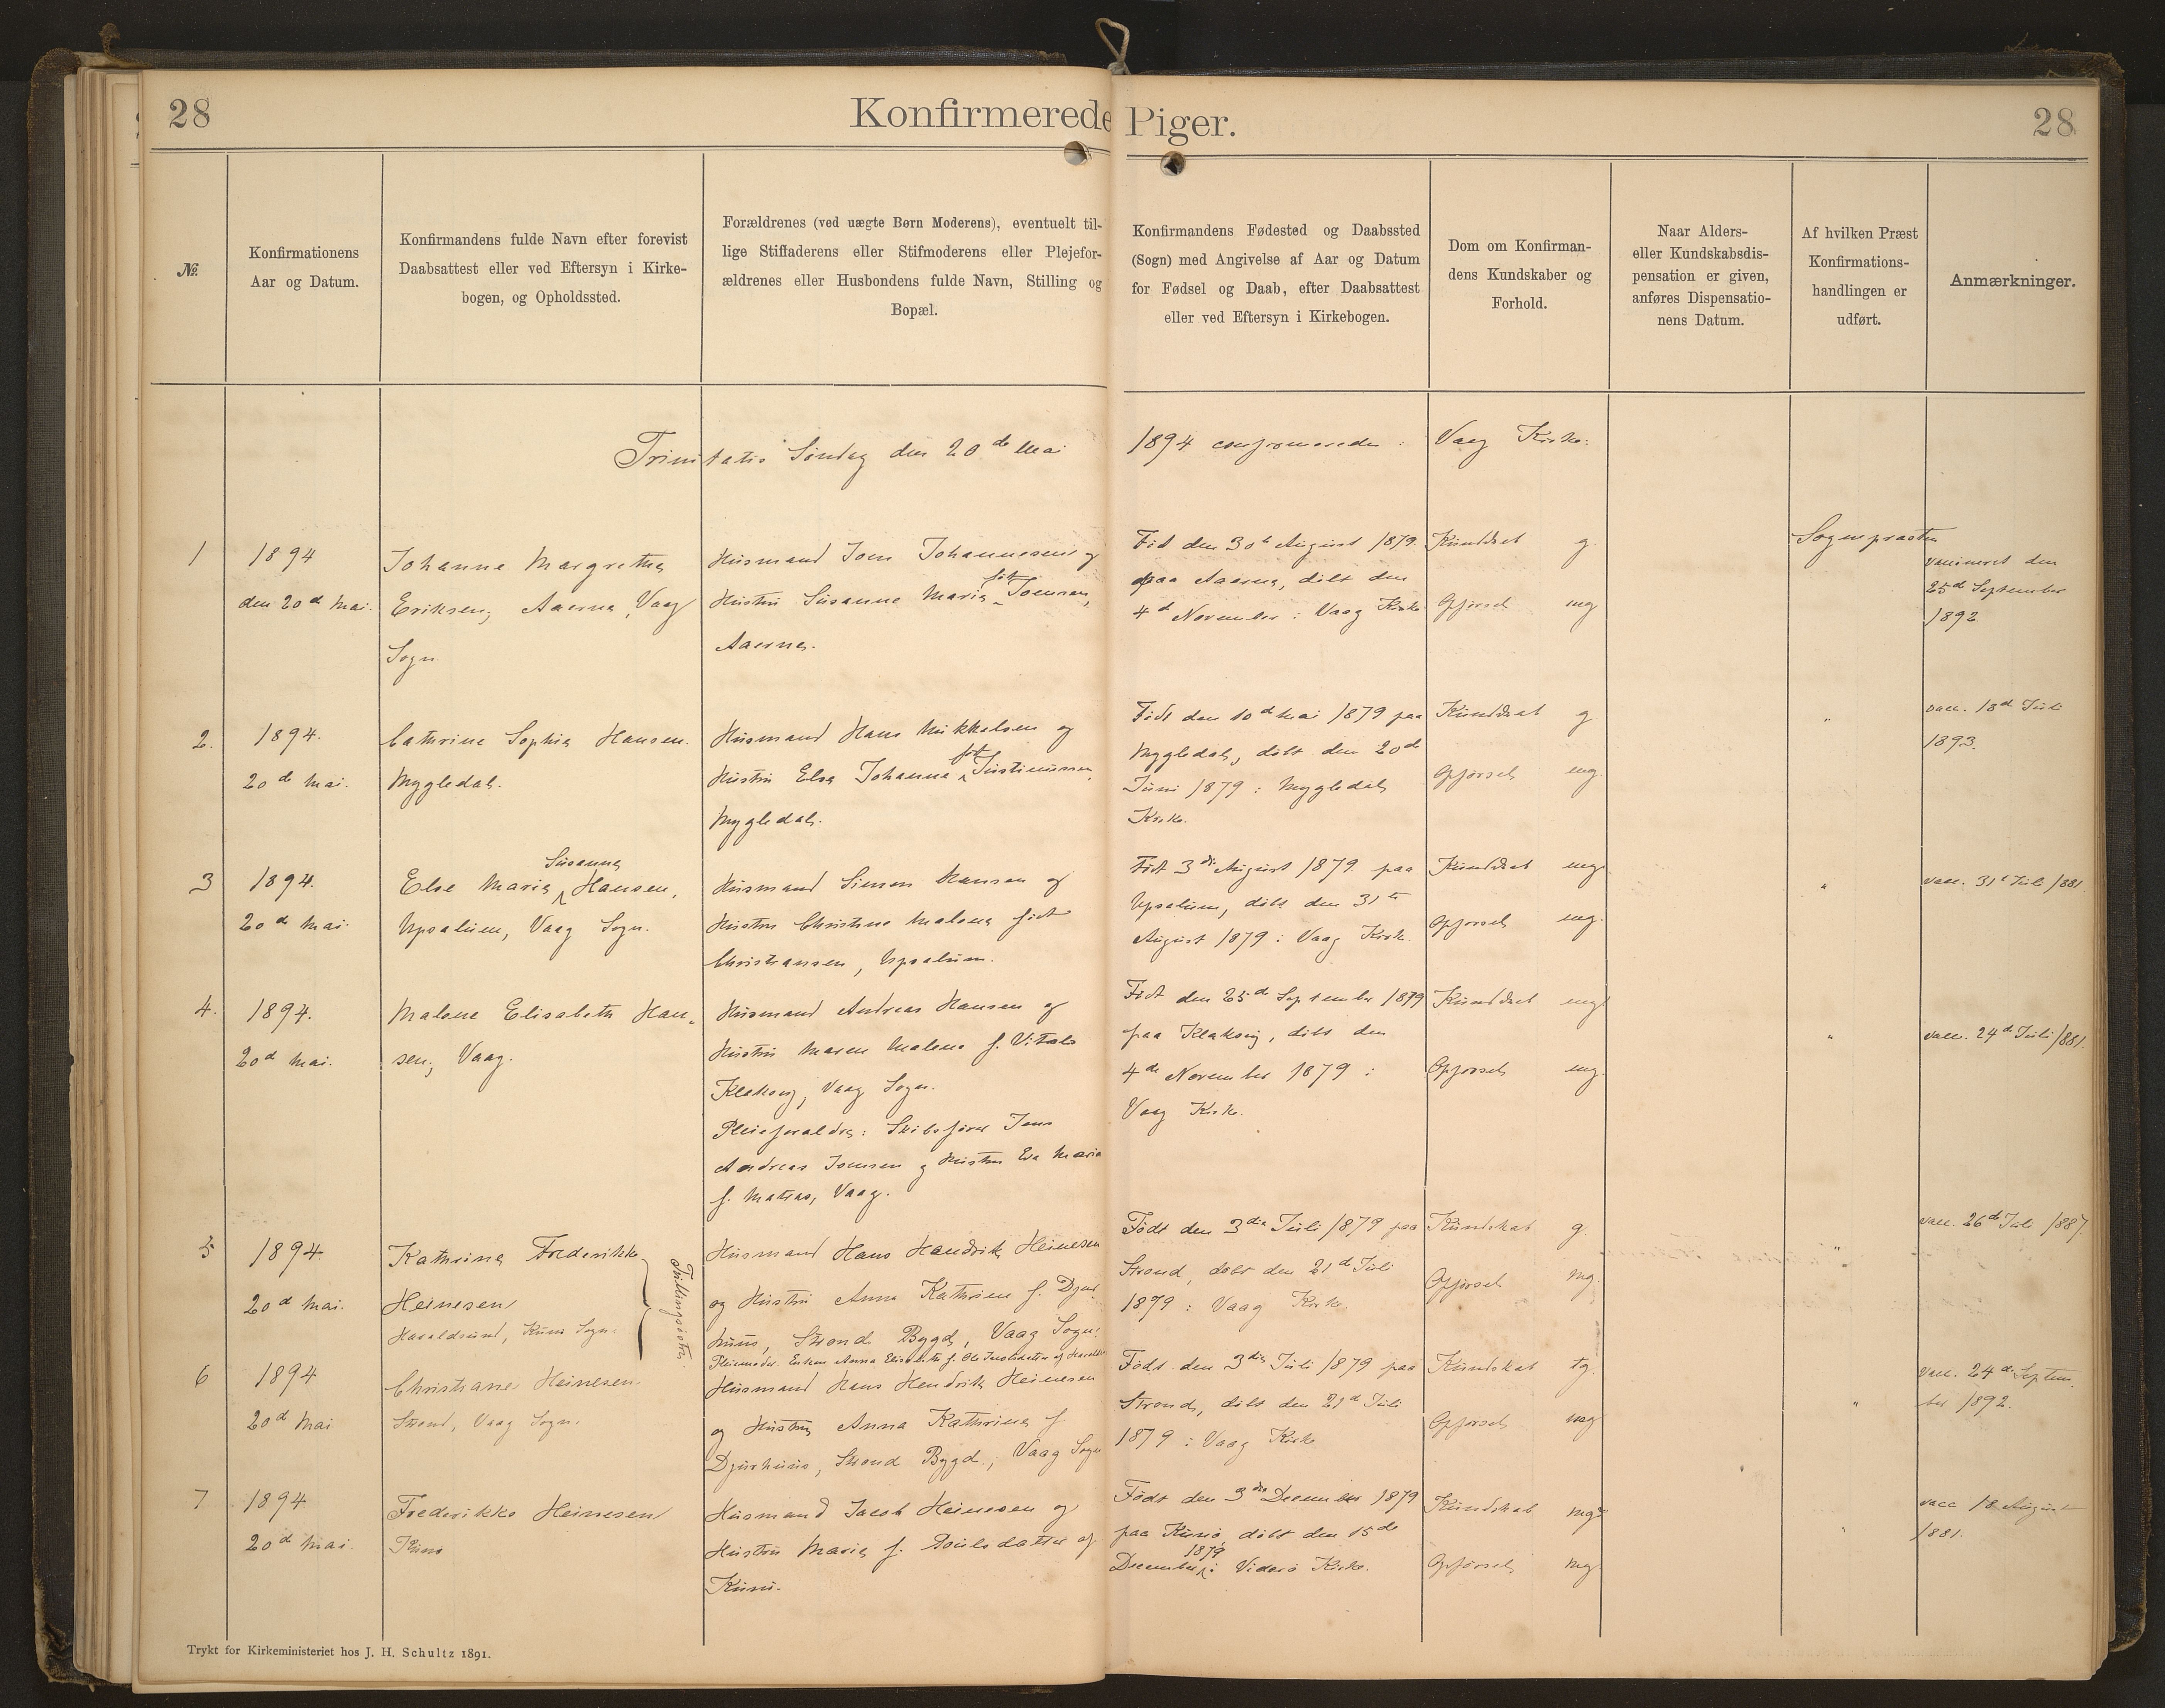 28
Konfirmerede Piger.
28
No.
Konfirmationens
Aar og Datum.
Konfirmandens fulde Navn efter forevist
Daabsattest eller ved Eftersyn i Kirke-
bogen, og Opholdssted.
Forældrenes (ved uægte Børn Moderens), eventuelt til-
lige Stiffaderens eller Stifmoderens eller Plejefor-
ældrenes eller Husbondens fulde Navn, Stilling og
Bopæl.
Konfirmandens Fødested og Daabssted
(Sogn) med Angivelse af Aar og Datum
for Fødsel og Daab, efter Daabsattest
eller ved Eftersyn i Kirkebogen.
Dom om Konfirman-
dens Kundskaber og
Forhold.
Naar Alders-
eller Kundskabsdis-
pensation er given,
anføres Dispensatio-
nens Datum.
Af hvilken Præst
Konfirmations-
handlingen er
udført.
Anmærkninger.
Trinitatis Søndag den 20de Mai 1894 confirmerede i Vaag Kirke:
1
1894
den 20d Mai.
Johanne Margrethe
Eriksen, Aaerne, Vaag
Sogn
Husmand Joen Johannesen og
Hustru Susanne Maria født Joensen,
Aaerne.
Fød den 30te August 1879
paa Aaerne, døbt den
4d November i Vaag Kirke
Kundskab g.
Opførsel mg
Sognepræsten
vaccineret den
25de September
1892
2.
1894.
20d Mai.
Cathrine Sophie Hansen.
Mygledal.
Husmand Hans Mikkelsen og
Hustru Else Johanne født Justinussen,
Mygledal.
Født den 10d Mai 1879 paa
Mygledal, døbt den 20de
Juni 1879 i Mygledal
Kirke.
Kundskab g
Opførsel mg.
"
vacc. 18d Juli
1893.
3
1894.
20d Mai.
Else Maria Susanne Hansen,
Upsalum, Vaag Sogn.
Husmand Simon Hansen og
Hustru Christine Malene født
Christiansen, Upsalum.
Født 3die August 1879 paa
Upsalum, døbt den 31te
August 1879 i Vaag Kirke.
Kundskab mg
Opførsel mg.
"
vacc. 31t Juli 1881
4.
1894.
20d Mai.
Malene Elisabeth Han-
sen, Vaag.
Husmand Andreas Hansen og
Hustru Maren Malene f. Vitals
Klaksvig, Vaag Sogn.
Pleieforældre: Skibsfører Jens
Andreas Joensen og Hustru Eva Maria
f. Matras, Vaag.
Født den 25de September 1879
paa Klaksvig, døbt den
4de November 1879 i
Vaag Kirke.
Kundskab mg
Opførsel mg.
"
vacc. 24d Juli 1881.
5
1894.
20d Mai.
Kathrine Frederikke
Heinesen
Haraldsund, Kunø Sogn.
Tvillingsøstre.
Husmand Hans Hendrik Heinesen
og Hustru Anna Kathrine f. Djur-
huus, Strond Bygd, Vaag Sogn.
Pleiemoder. Enken Anna Elisabeth f.
Født den 3die Juli 1879 paa
Strond, døbt den 21d Juli
1879 i Vaag Kirke.
Kundskab g
Opførsel mg.
"
vacc. 26d Juli 1887.
6
1894
20d Mai
Christiane Heinesen
Strond, Vaag Sogn.
Husmand Hans Hendrik Heinesen
og Hustru Anna Kathrine f.
Djurhuus, Strond Bygd., Vaag Sogn
Født den 3die Juli 1879 paa
Strond, døbt den 21d Juli
1879 i Vaag Kirke
Kundskab tg.
Opførsel mg
"
vacc. 24de Septem-
ber 1892.
7
1894
20d Mai.
Frederikke Heinesen
Kunø
Husmand Jacob Heinesen og
Hustru Maria f. Poulsdatter af
Kunø.
Født den 3die December 1879
paa Kunø, døbt den 15de
December 1879 i Viderø Kirke.
Kundskab mg
Opførsel mg
"
vacc 18 August
1881.
Trykt for Kirkeministeriet hos J. H. Schultz 1891.